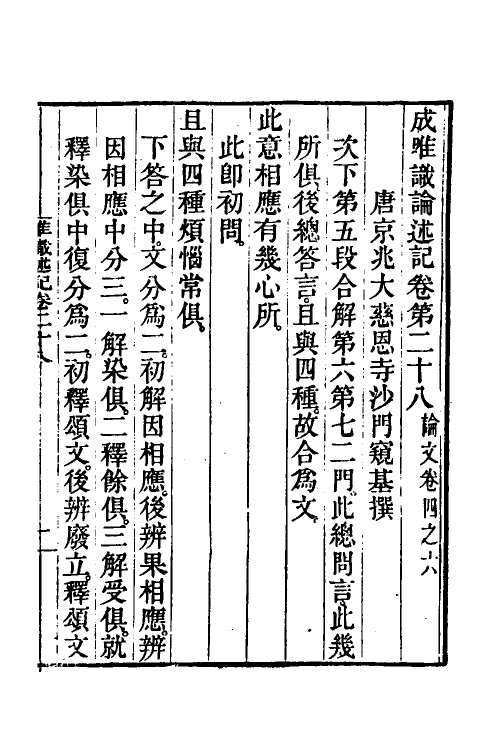 成唯識論述記卷第二十八 論文卷四之六
唐京兆大慈恩寺沙門窺基撰
次下第五段合解第六第七二門。此總問言。此幾
所俱。後總答言。且與四種。故合爲文。
此意相應有幾心所。
此卽初問。
且與四種煩惱常俱。
下答之中。文分爲二。初解因相應。後辨果相應。辨
因相應中分三。一解染俱。二釋餘俱。三解受俱。就
釋染俱中復分爲二。初釋頌文。後辨廢立。釋頌文
唯識述記卷二十八 一